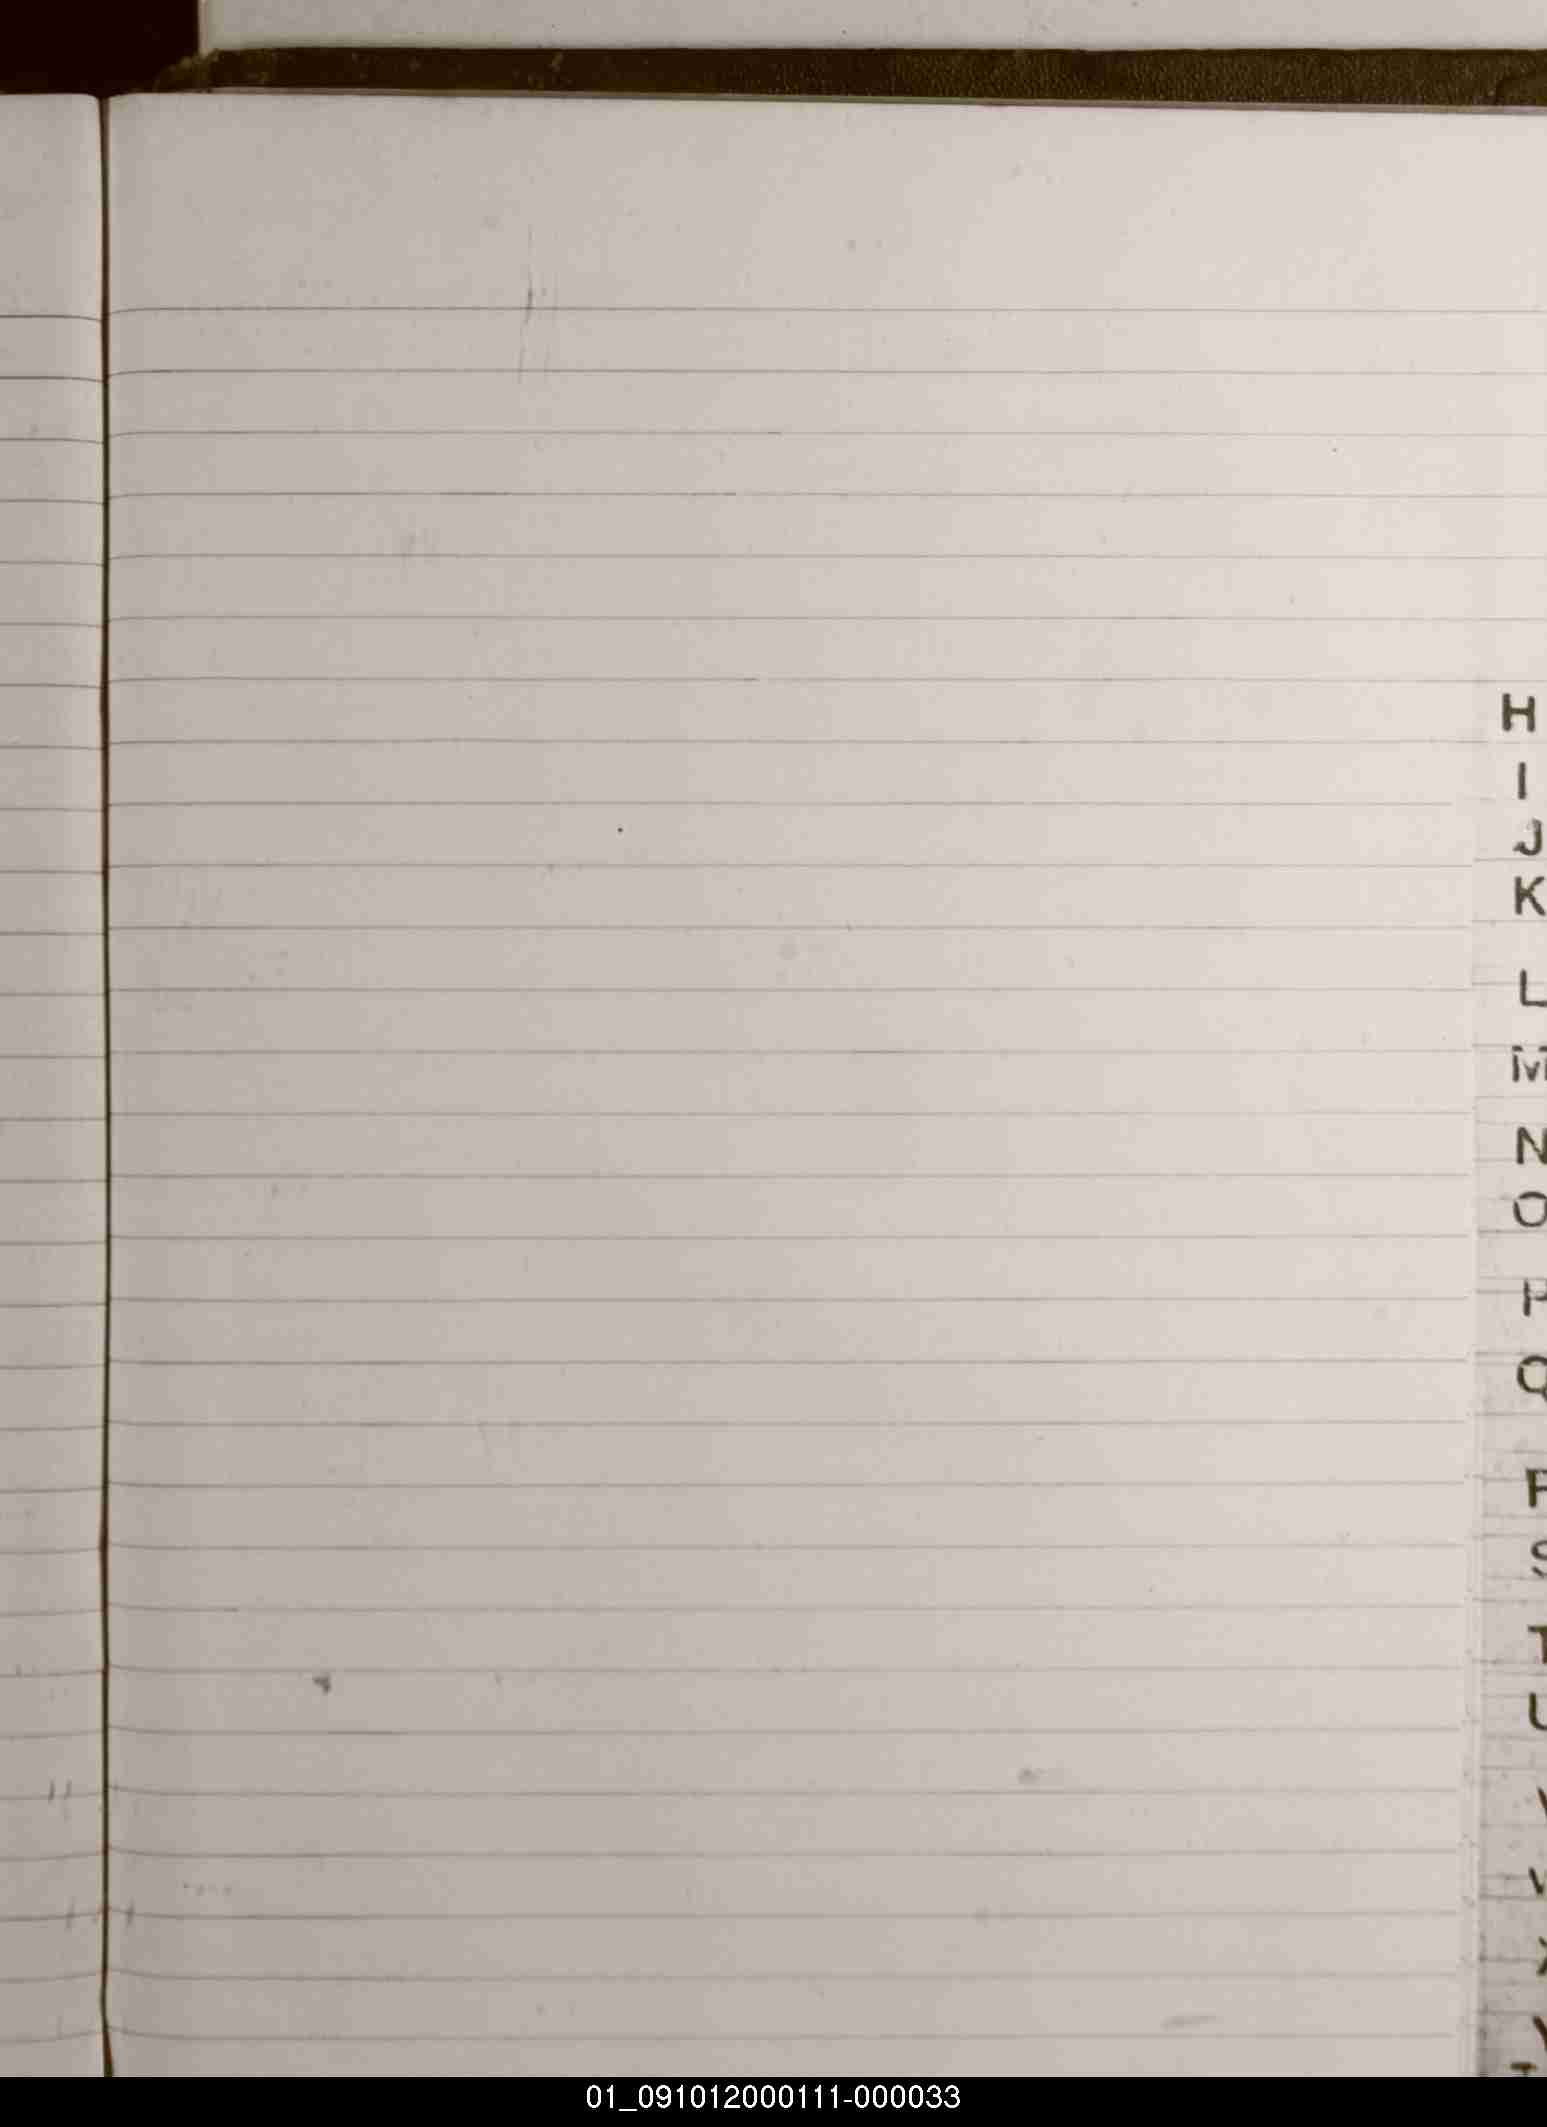 H
I
J
K
L
M
N
O
P
Q
R
S
T
U
V
W
X
Y
01_091012000111-000033